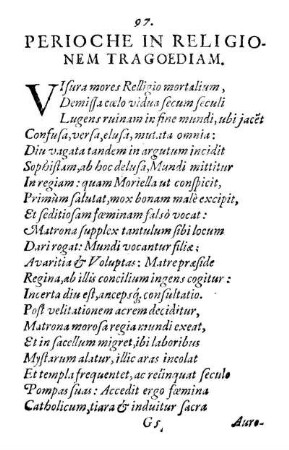 97.
PERIOCHE IN RELIGIO-
NEM TRAGOEDIAM.
VIſura mores Relligio mortalium,
Demiſſa cœlo vidua ſecum ſeculi
Lugens ruinam in fine mundi, ubi jacēt
Confuſa, verſa, eluſa, mutata omnia:
Diu vagata tandem in argutum incidit
Sophiſtam, ab hoc deluſa, Mundi mittitur
In regiam: quam Moriella ut conſpicit,
Primùm ſalutat, mox bonam malè excipit,
Et ſeditioſam fœminam falsò vocat:
Matrona ſupplex tantulum ſibi locum
Dari rogat: Mundi vocantur filiæ;
Avaritia & Voluptas: Matre præside
Regina, ab illis concilium ingens cogitur:
Incerta diu eſt, ancepsq́, conſultatio.
Poſt velitationem acrem deciditur,
Matrona moroſa regia mundi exeat,
Et in ſacellum migret, ibi laboribus
Myſtarum alatur, illic aras incolat
Et templa frequentet, ac relinquat ſeculo
Pompas ſuas: Accedit ergo fœmina
Catholicum, tiara & induitur ſacra
G5 Auro-